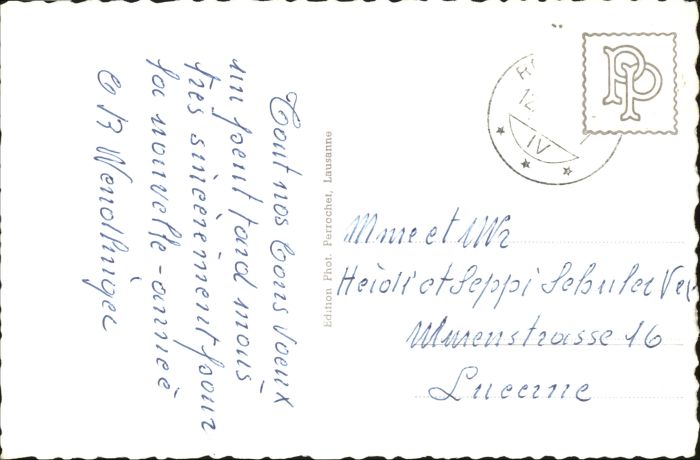 Tout nos bons voeux
un peut tard mous
très sincèrement pour
la nouvelle-année
Wendlinger
Edition Phot. Perrochet, Lausanne
PP
12
IV
Mme et Mr
Heidi et Seppi Schuler
strasse 16
Lucerne